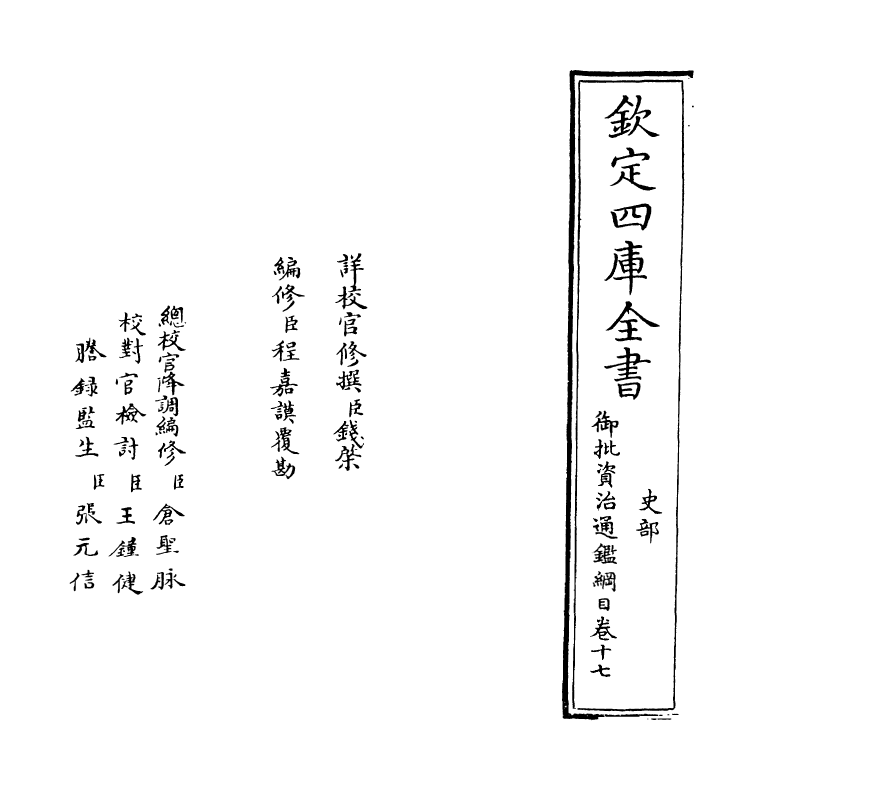 欽定四庫全書
史部
御批資治通鑑綱目卷十七
詳校官修撰臣錢棨
編修臣程嘉謨覆勘
總校官降調編修臣倉聖脉
校對官檢討臣王鐘健
謄録監生臣張元信